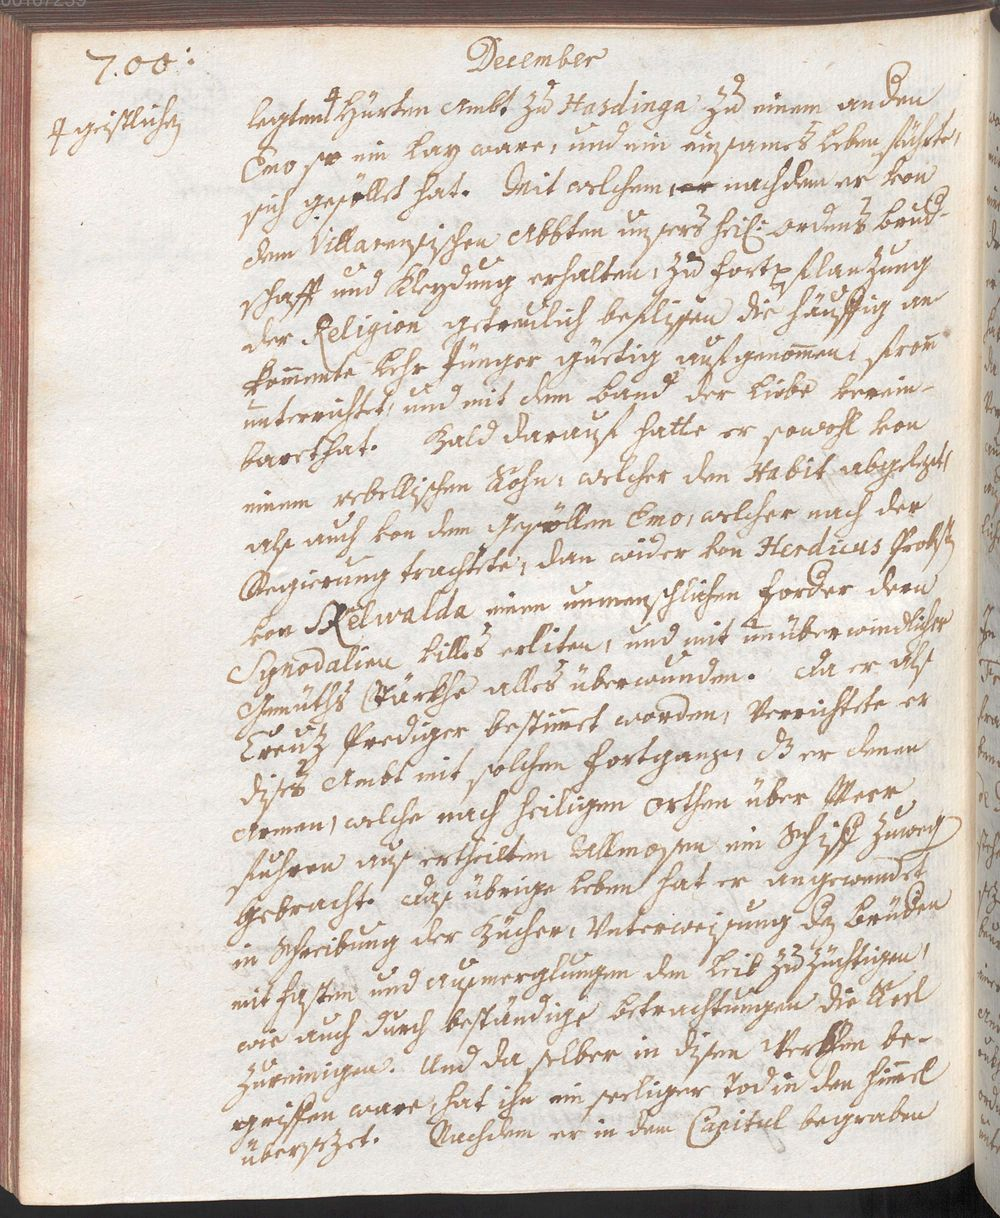 00167239
700:
December
╬ geistlichen
legten ╬ Hürten Ambt zu Hasdinga zu einem anden
Emo so ein Lay ware, und ein einsames Leben führte,
sich gesellet hat. Mit welchem, er nachdem er von
dem Villarensischen Abbten unsers heil: Ordens Brud-
schafft und Kleydung erhalten, zu fortpflanzung
der Religion getreulich beflissen die häuffig an
kommente Lehr Jünger güettig aufgenommen, fromm
unterrichtet, und mit dem Band der Liebe verein-
baret hat. Bald darauf hatte er sowohl von
einem rebellischen Sohn, welcher den Habit abgelegt,
als auch von dem Gesellen Emo, welcher nach der
Regierung trachtete, dan wider von Herdicus Probsten
von Skelwalda einem unmenschlichen forder dern
Synodalien villes erliten, und mit unüberwindlicher
Gemüths Stärkhe alles überwunden. Da er als
Creutz Prediger bestimmet worden, verrichtete er
dises Ambt mit solchem fortgang, dz er denen
Armen, welche nach heiligen Orthen über Meer
fuhren aus ertheilten Allmosen ein Schiff zuweg
gebracht. Das übrige Leben hat er angewendet
in Schreibung der Bücher, Unterweisung der Brüder
mit fasten und ausmerglungen den Leib zu züchtigen,
wie auch durch beständige betrachtungen die Seel
zureinigen. Und da selber in disen Werkhen be-
griffen ware, hat ihn ein seeliger Tod in den himmel
übersezet. Nachdem er in dem Capitul begraben